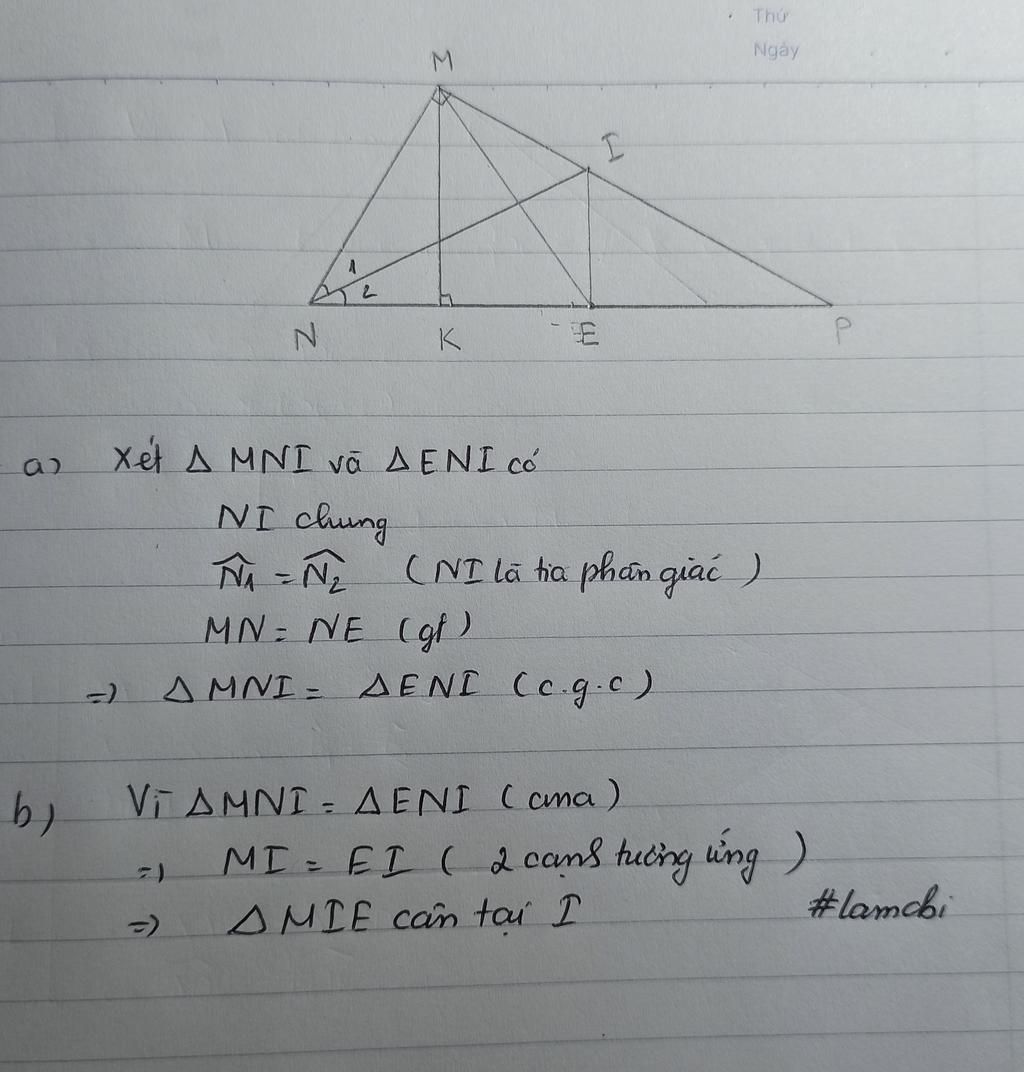 Thứ
Ngày
M
I
1
2
N K E P
a) Xét Δ MNI và Δ ENI có
NI chung
N̂1 = N̂2 (NI là tia phân giác)
MN = NE (gt)
=> Δ MNI = Δ ENI (c.g.c)
b) Vì Δ MNI = Δ ENI (cma)
=> MI = EI (2 cạnh tương ứng)
=> Δ MIE cân tại I #lamchi